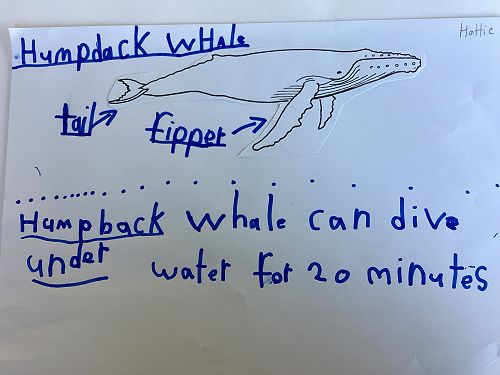 Hattie
Humpdack Whale
tail
fipper
Humpback Whale can dive
under water for 20 minutes